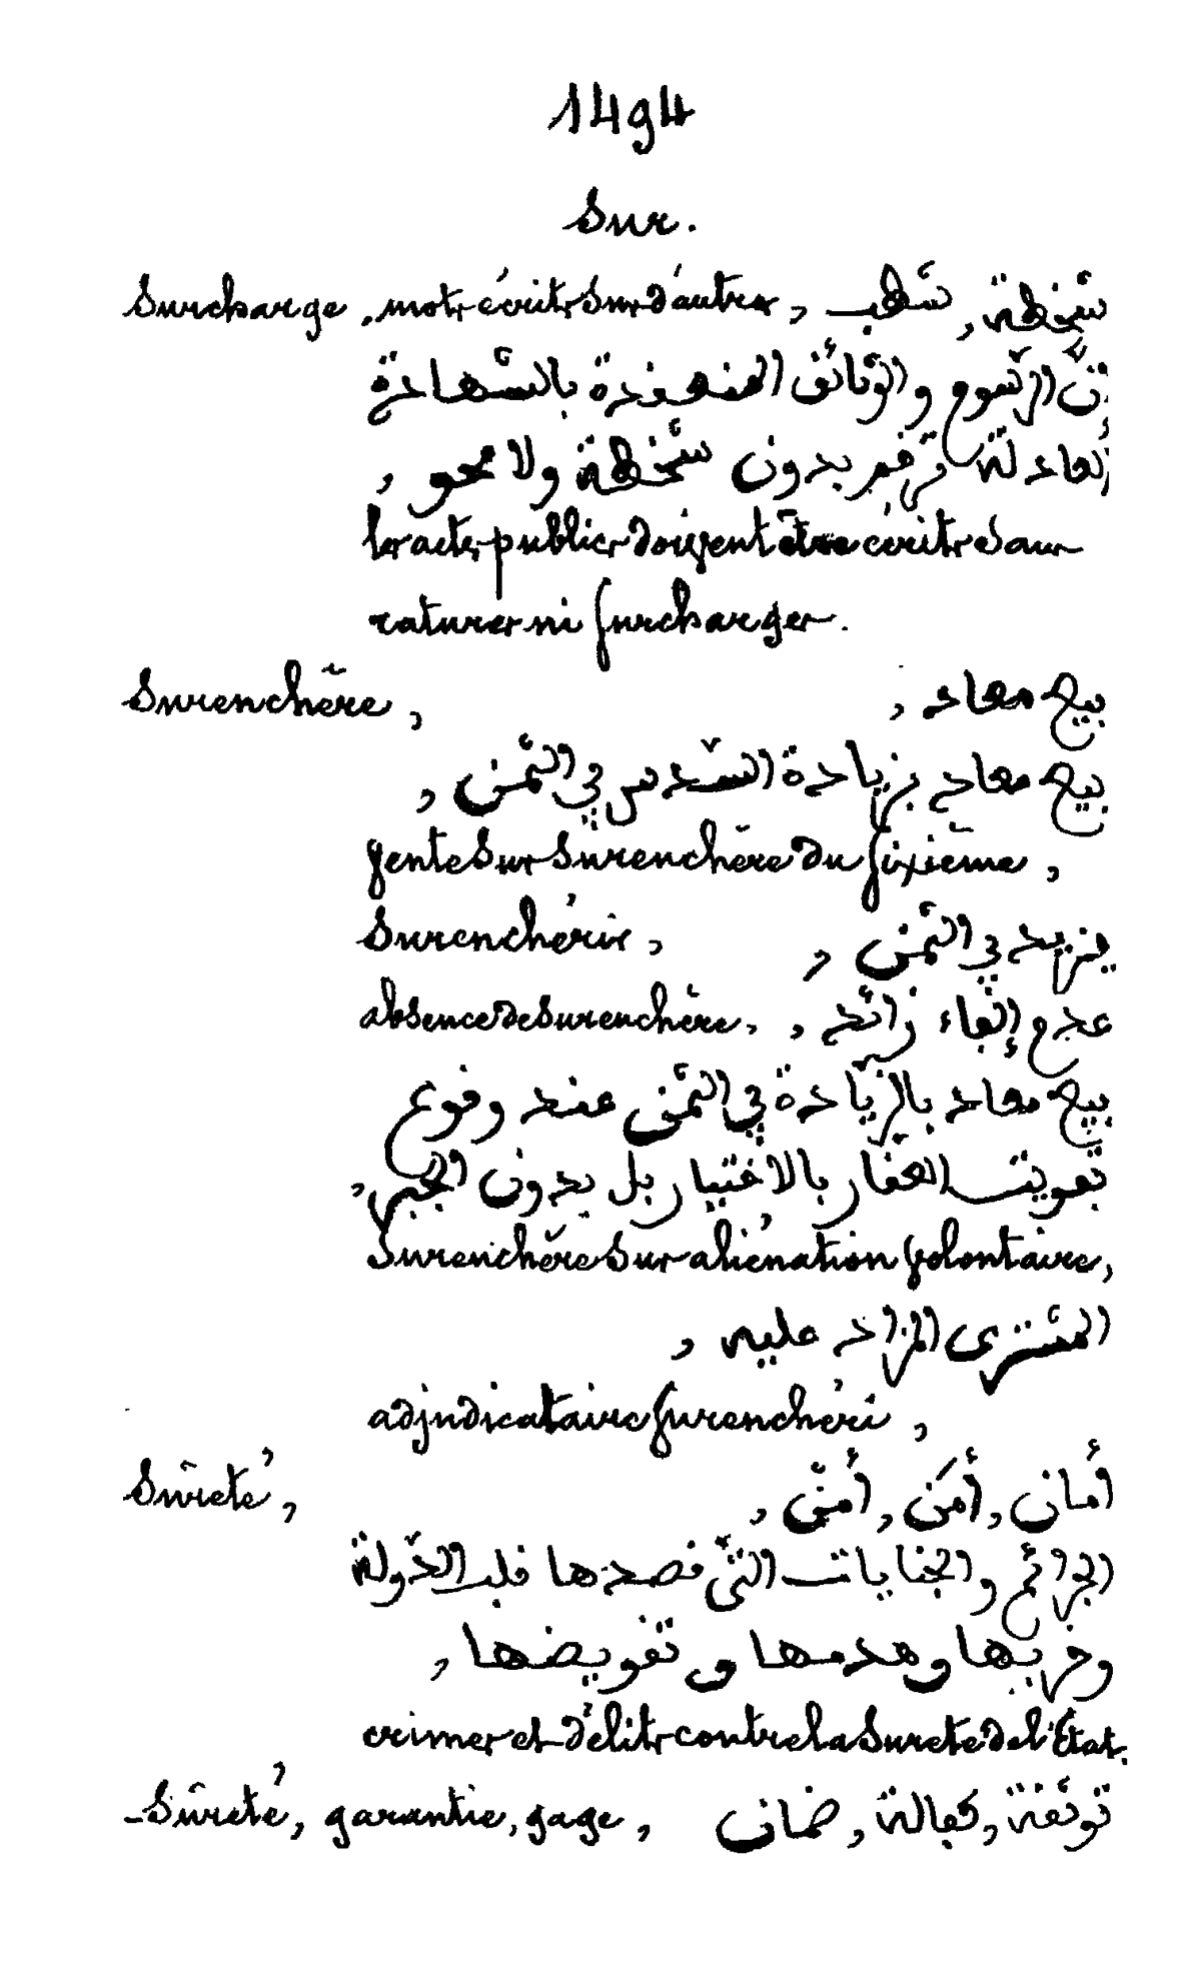 1494
Sur.
Surcharge, mots écrits sur d'autres, شطب, شخطة
الرسوم والوثائق المنعقدة بالشهادة
العادلة ترقم بدون شخطة ولا محو,
les actes publics doivent être écrits sans
ratures ni surcharges.
Surenchère, بيع معاد,
بيع معاد بزيادة السّدس في الثّمن,
vente sur surenchère du sixième,
Surenchérir, يزيد في الثّمن,
absence de surenchère, عدم إلفاء زائد,
بيع معاد بالزّيادة في الثّمن عند وقوع
تفويت العقار بالاختيار بل بدون الجبر,
Surenchère sur aliénation volontaire,
المشترى المزاد عليه,
adjudicataire surenchéri,
Sûreté, أمان, أمَن, أمنّ,
الجرائم والجنايات الّتي قصدها قلب الدّولة
وخربها وهدمها وتقويضها,
crimes et délits contre la sureté de l'État.
-Sûreté, garantie, gage, توثقة, كفالة, ضمان